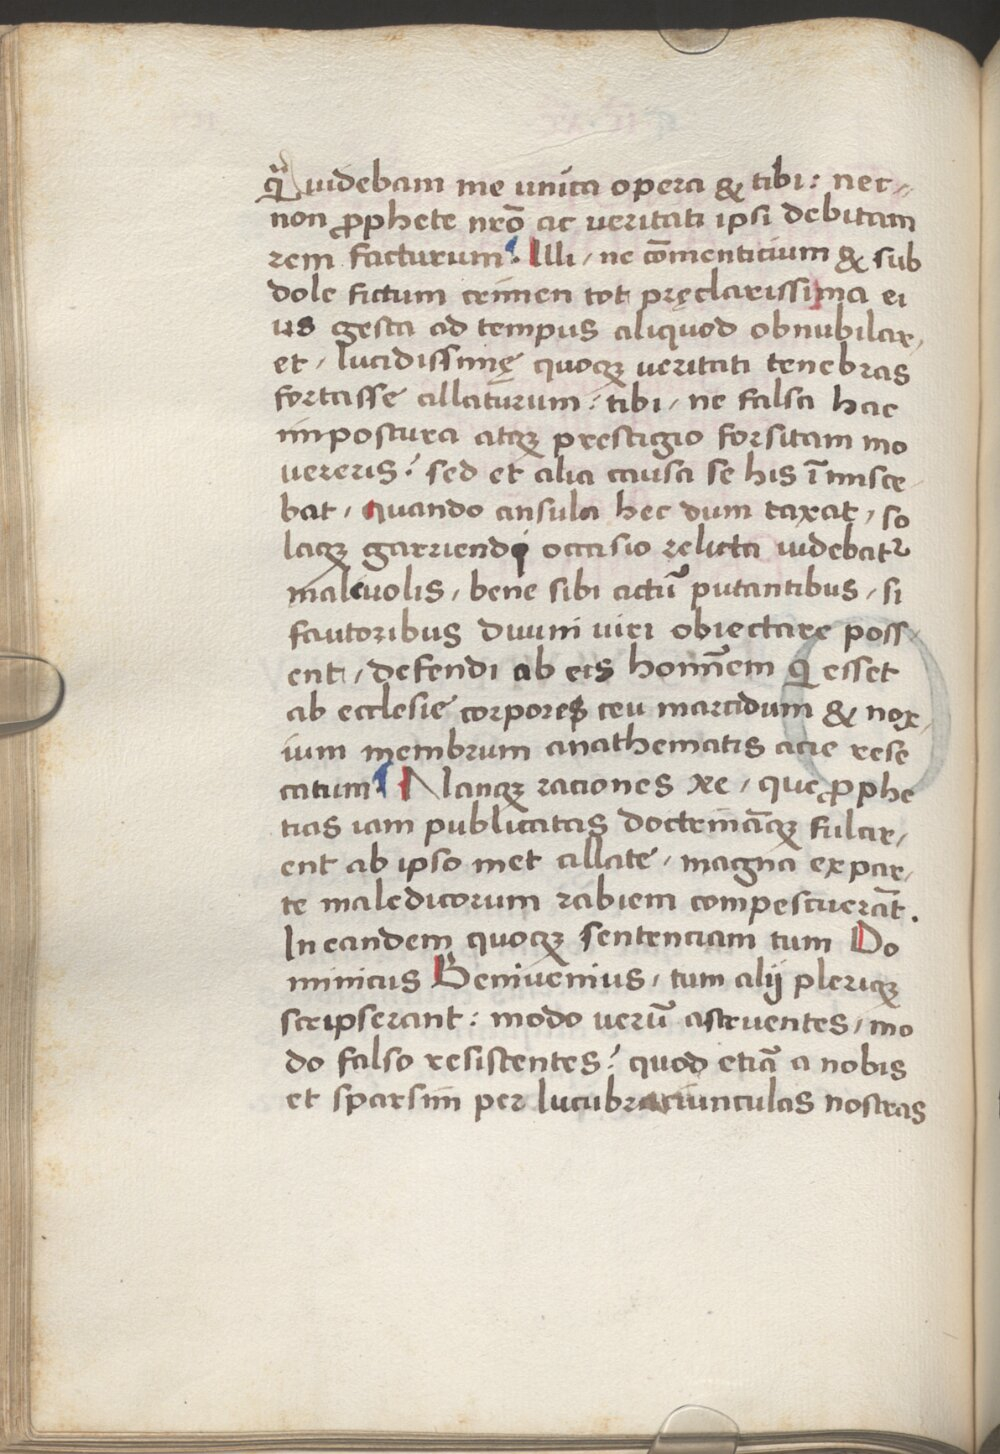 Qᷓ uidebam me unica opera & tibi: nec-
non ꝓphete nr̄o ac veritati ipsi debitam
rem facturum. Illi, ne cōmenticium & sub
dole fictum crimen tot pręclarissima ei
us gesta ad tempus aliquod obnubilar,
et, lucidissimę quoqꝫ veritati tenebras
fortasse allaturum: tibi, ne falsa hac
impostura atqꝫ prestigio forsitam mo
vereris: sed et alia causa se his īmisce
bat, quando ansula hec dum taxat, so
laqꝫ garriendi occasio relicta uidebat᷑
malevolis, bene sibi actū putantibus, si
fautoribus diuini uiri obiectare poss
ent, defendi ab eis homīnem q̄ esset
ab ecclesie corpores ceu marcidum & nox,
ium membrum anathematis acie rese
catum Nanqꝫ raciones xe, que ꝓphe
tias iam publicatas doctrināqꝫ fulcir,
ent ab ipso met allate, magna ex par,
te maledicorum rabiem compescuerāt.
In eandem quoqꝫ sentenciam tum Do
minicus Beniuenius, tum alij pleriqꝫ
scripserant: modo verū astruentes, mo
do falso resistentes: quod etiā a nobis
et sparsim per lucubraciunculas nostras